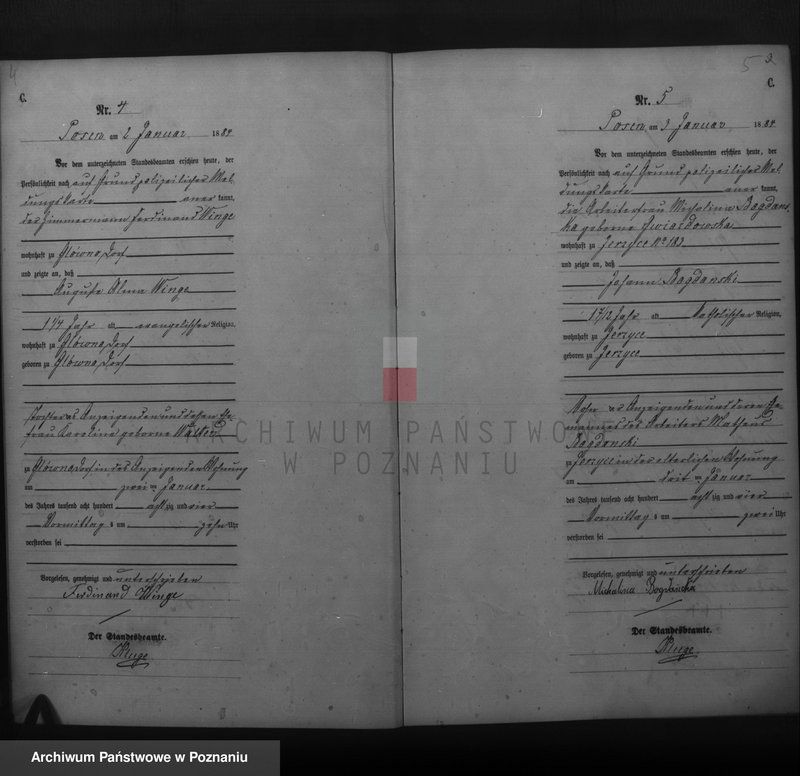 4
C.
Nr. 4
Posen, am 2 Januar 1884
Vor dem unterzeichneten Standesbeamten erschien heute, der
Persönlichkeit nach auf Grund polizeilicher Mel
dungskarte aner kannt,
der Zimmermann Ferdinand Winge
wohnhaft zu Glowno, Dorf
und zeigte an, daß
Auguste Alma Winge
Jahr evangelischer Religion,
wohnhaft zu Glówno, Dorf
geboren zu Glówno, Dorf
Tochter des Anzeigenden und dessen Ehe
frau Karoline geborne
zu Glówno, Dorf in des Anzeigenden Wohnung
am zwei ten Januar
des Jahres tausend acht hundert acht zig und vier
Vormittag s um zehn Uhr
verstorben sei
Vorgelesen, genehmigt und unterschrieben
Ferdinand Winge
Der Standesbeamte.
Kluge
5
C.
Nr. 5
Posen, am 3 Januar 1884
Vor dem unterzeichneten Standesbeamten erschien heute, der
Persönlichkeit nach auf Grund polizeilicher Mel
dungskarte aner kannt,
die Arbeiterfrau Michalina Bagdans
ka geborne Gwiazdowska
wohnhaft zu Jerzyce No 183
und zeigte an, daß
Johann Bagdanski
Jahr katholischer Religion,
wohnhaft zu Jerzyce
geboren zu Jerzyce
Sohn der Anzeigenden und deren Ehe
mannes des Arbeiters Matheus
Bagdanski
zu Jerzyce in der elterlichen Wohnung
am drit ten Januar
des Jahres tausend acht hundert acht zig und vier
Vormittag s um zwei Uhr
verstorben sei
Vorgelesen, genehmigt und unterschrieben
Michalina Bogdańcka
Der Standesbeamte.
Kluge
ARCHIWUM PAŃSTWOWE
W POZNANIU
Archiwum Państwowe w Poznaniu